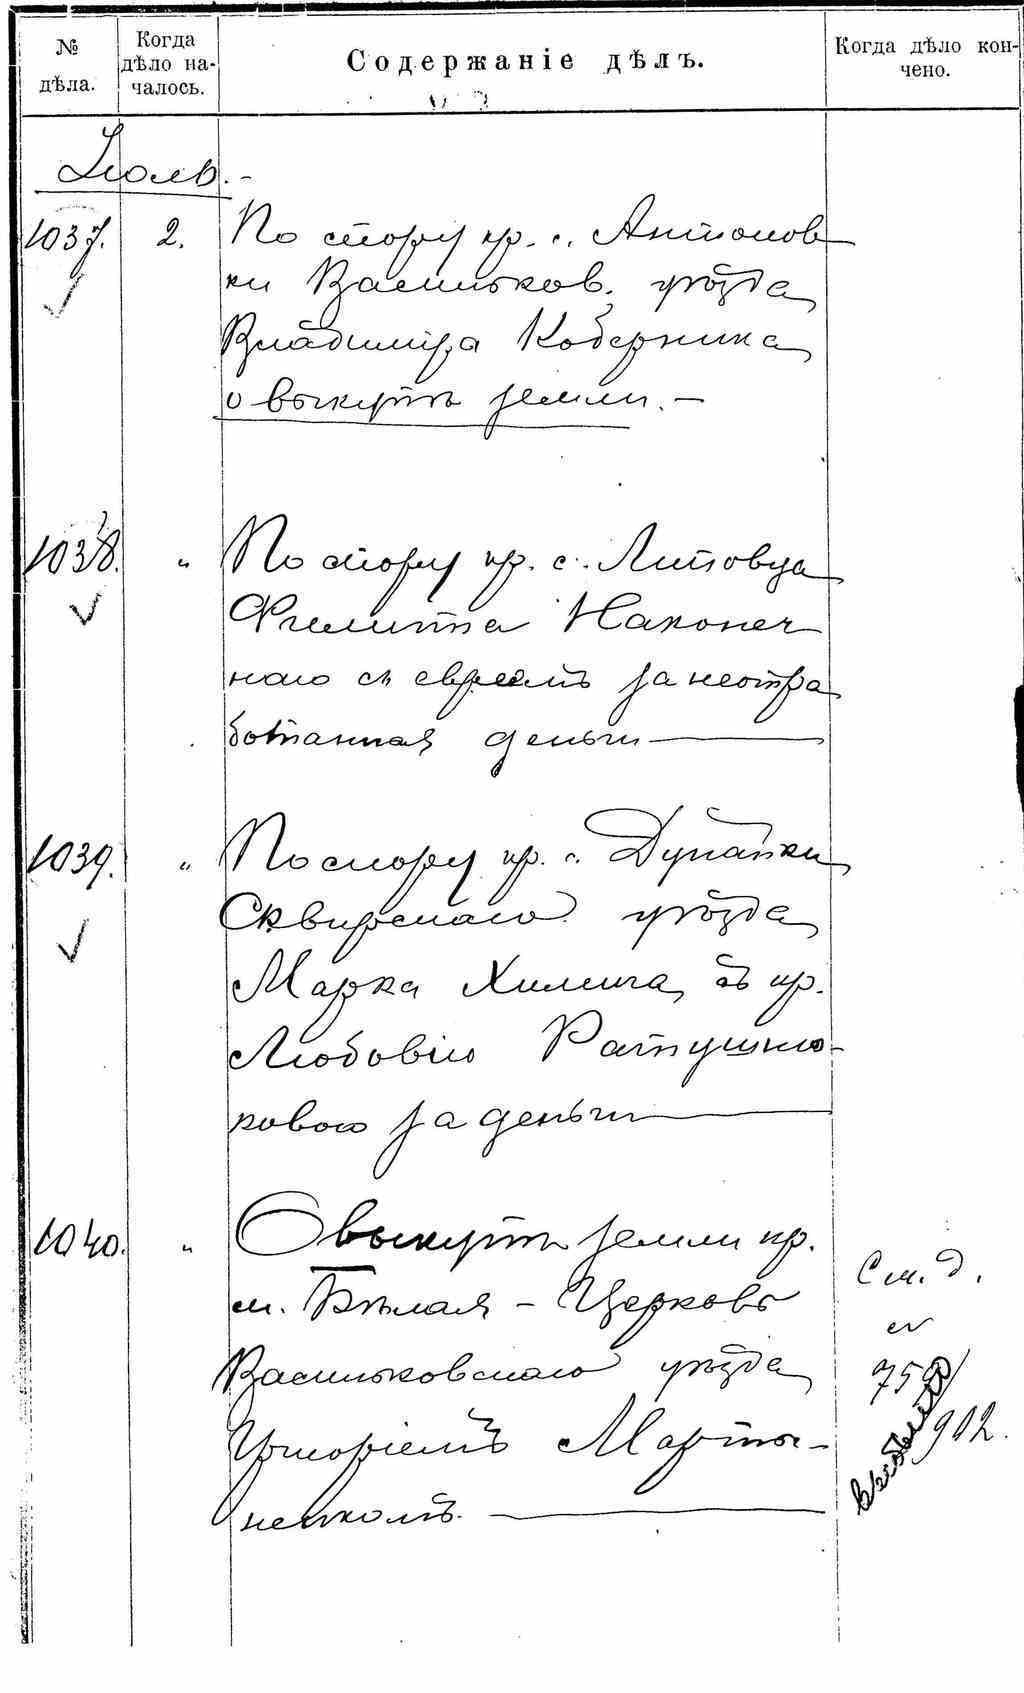 № дѣла.
Когда дѣло на-
чалось.
Содержаніе дѣлъ.
Когда дѣло кон-
чено.
Іюль.-
1037. 2. По спору кр. с. Антонов
ки Васильков. уѣзда
Владиміра Коберника
о выкупѣ земли.-
1038. " По спору кр. с. Литовца
Филиппа Наконеч
наго съ евреемъ за неотра
ботанная деньги
1039. " По спору кр. с.
Сквирскаго уѣзда
Марка съ кр.
Любовію Ратушню-
ковою за деньги
1040. " О выкупѣ земли кр.
м. Бѣлая-Церковь
Васильковскаго уѣзда
Григоріемъ Марты-
ненкомъ.
См. д.
№
902.